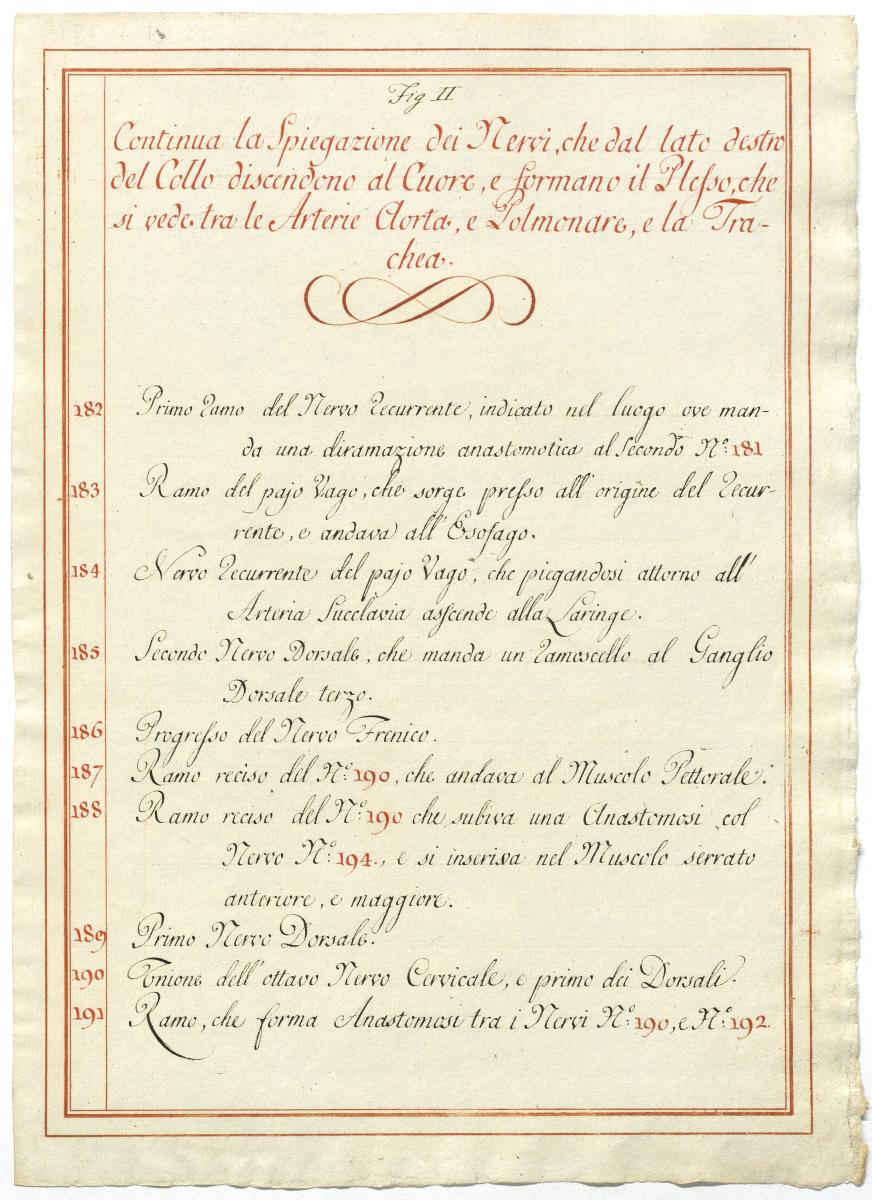 Fig II
Continua la Spiegazione dei Nervi, che dal lato destro
del Collo discendono al Cuore, e formano il Plesso, che
si vede tra le Arterie Aorta, e Polmonare, e la Tra-
chea.
182 Primo ramo del Nervo recurrente, indicato nel luogo ove man-
da una diramazione anastomotica al secondo Nº: 181
183 Ramo del pajo Vago, che sorge presso all' origine del recur-
rente, e andava all' Esofago.
184 Nervo recurrente del pajo Vago, che piegandosi attorno all'
Arteria succlavia asscende alla Laringe.
185 Secondo Nervo Dorsale, che manda un ramoscello al Ganglio
Dorsale terzo.
186 Progresso del Nervo Frenico.
187 Ramo reciso del Nº: 190, che andava al Muscolo Pettorale.
188 Ramo reciso del Nº: 190 che subiva una Anastomosi col
Nervo Nº: 194., e si inseriva nel Muscolo serrato
anteriore, e maggiore.
189 Primo Nervo Dorsale.
190 Unione dell' ottavo Nervo Cervicale, e primo dei Dorsali.
191 Ramo, che forma Anastomosi tra i Nervi Nº: 190, e Nº: 192.